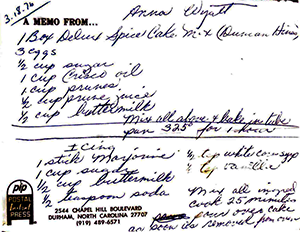 3.18.76
Anna Wyatt
A MEMO FROM...
1 Box Delux Spice Cake Mix (Duncan Hines)
3 eggs
½ cup sugar
1 cup Crisco oil
1 cup prunes
½ cup prune juice
½ cup buttermilk
Mix all above & bake in tube
pan 325° for 1 hour
Icing
1 stick Marjorine
1 cup sugar
½ cup buttermilk
½ teaspoon soda
¼ cup white corn syrup
½ t vanillia
Mix all ingred
cook 25 minutes
pour over cake
as soon as removed from oven
plp
POSTAL
instant
PRESS
2544 CHAPEL HILL BOULEVARD
DURHAM, NORTH CAROLINA 27707
(919) 489-6571